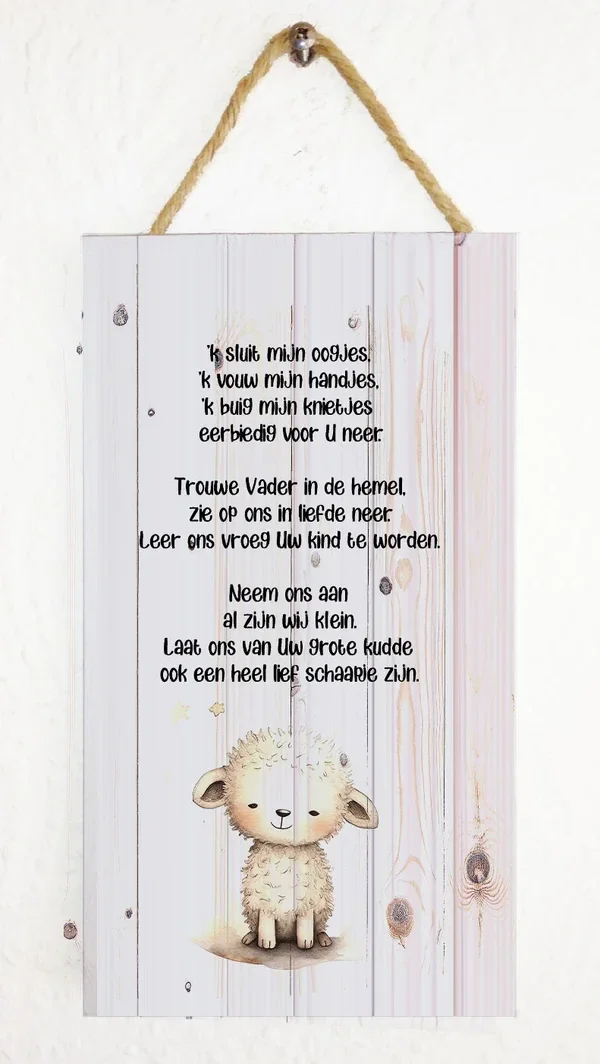 'k sluit mijn oogjes,
'k vouw mijn handjes,
'k buig mijn knietjes
eerbiedig voor U neer.
Trouwe Vader in de hemel,
zie op ons in liefde neer.
Leer ons vroeg Uw kind te worden.
Neem ons aan
al zijn wij klein.
Laat ons van Uw grote kudde
ook een heel lief schaapje zijn.